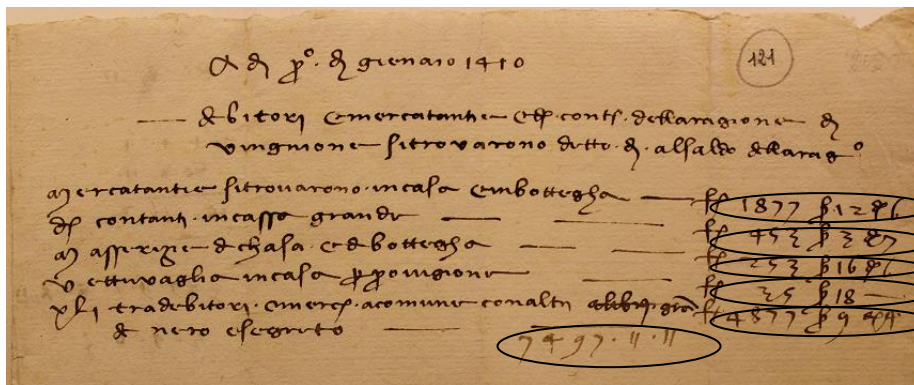 A di p° di gienaio 1410
121
debitori e mercatantie e d contti della ragione di
vingnione si trovarono detto di al saldo della rag°
mercatantie si trovarono in casa e in bottegha — f 1877 s 12 d 6
d contanti in cassa grande — — f 453 s 3 d 7
masserizie di chasa e di bottegha — — f 253 s 16 d 6
vettuvaglia in casa p provigione — f 35 s 18 —
tra debitori e merc a comune con altri f 4877 s 9 d 4
di nero e segreto — 7497·11·11